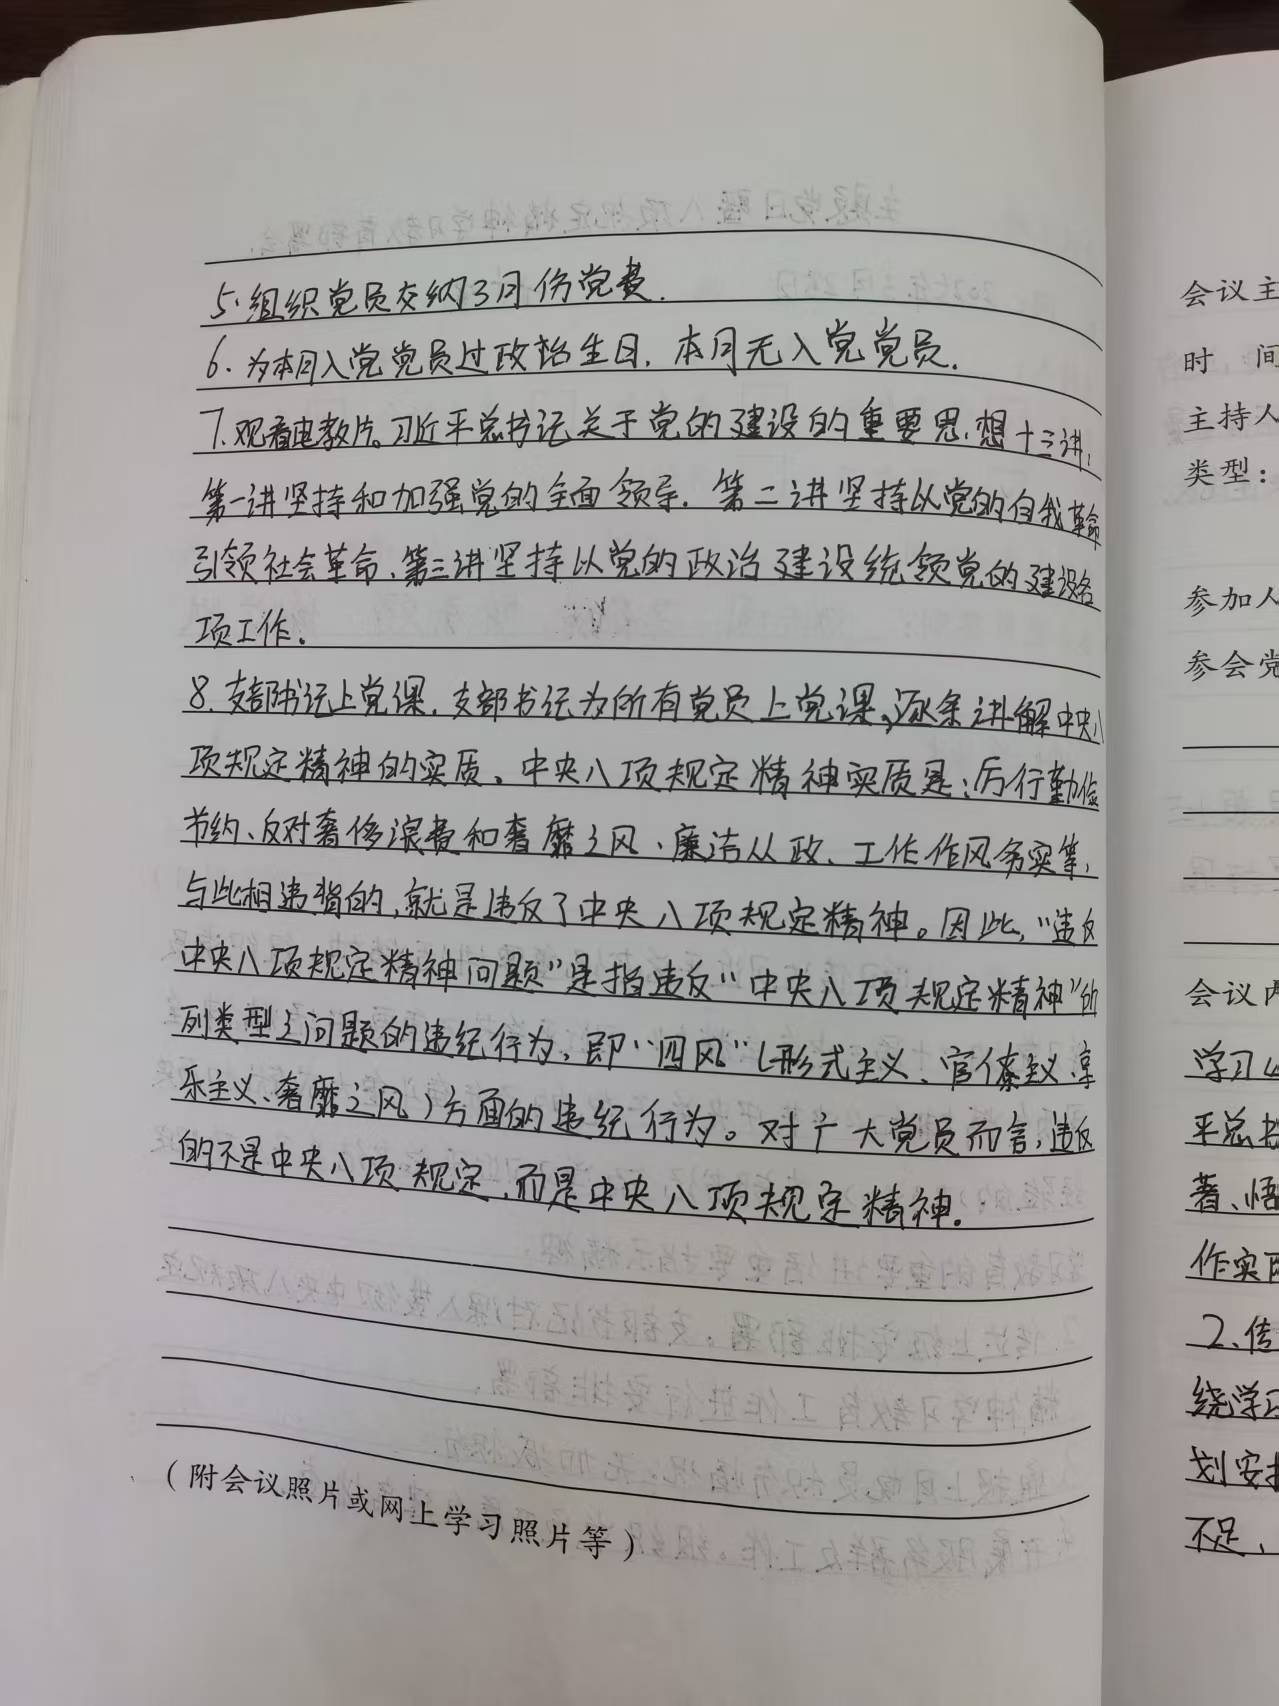 5.组织党员交纳3月份党费.
6.为本月入党党员过政治生日.本月无入党党员.
7.观看电教片。习近平总书记关于党的建设的重要思想十三讲,
第一讲坚持和加强党的全面领导.第二讲坚持以党的自我革命
引领社会革命、第三讲坚持以党的政治建设统领党的建设各
项工作.
8.支部书记上党课.支部书记为所有党员上党课,逐条讲解中央八
项规定精神的实质。中央八项规定精神实质是:厉行勤俭
节约、反对奢侈浪费和奢靡之风、廉洁从政、工作作风务实等,
与此相违背的,就是违反了中央八项规定精神。因此,“违反
中央八项规定精神问题”是指违反“中央八项规定精神”的
列类型之问题的违纪行为,即“四风”(形式主义、官僚主义、享
乐主义、奢靡之风)方面的违纪行为。对广大党员而言,违反
的不是中央八项规定,而是中央八项规定精神.
(附会议照片或网上学习照片等)
会议主
时 间
主持人
类型:
参加人
参会党
会议内
学习
平总书
著、悟
作实
2、传
绕学习
划安排
不足、